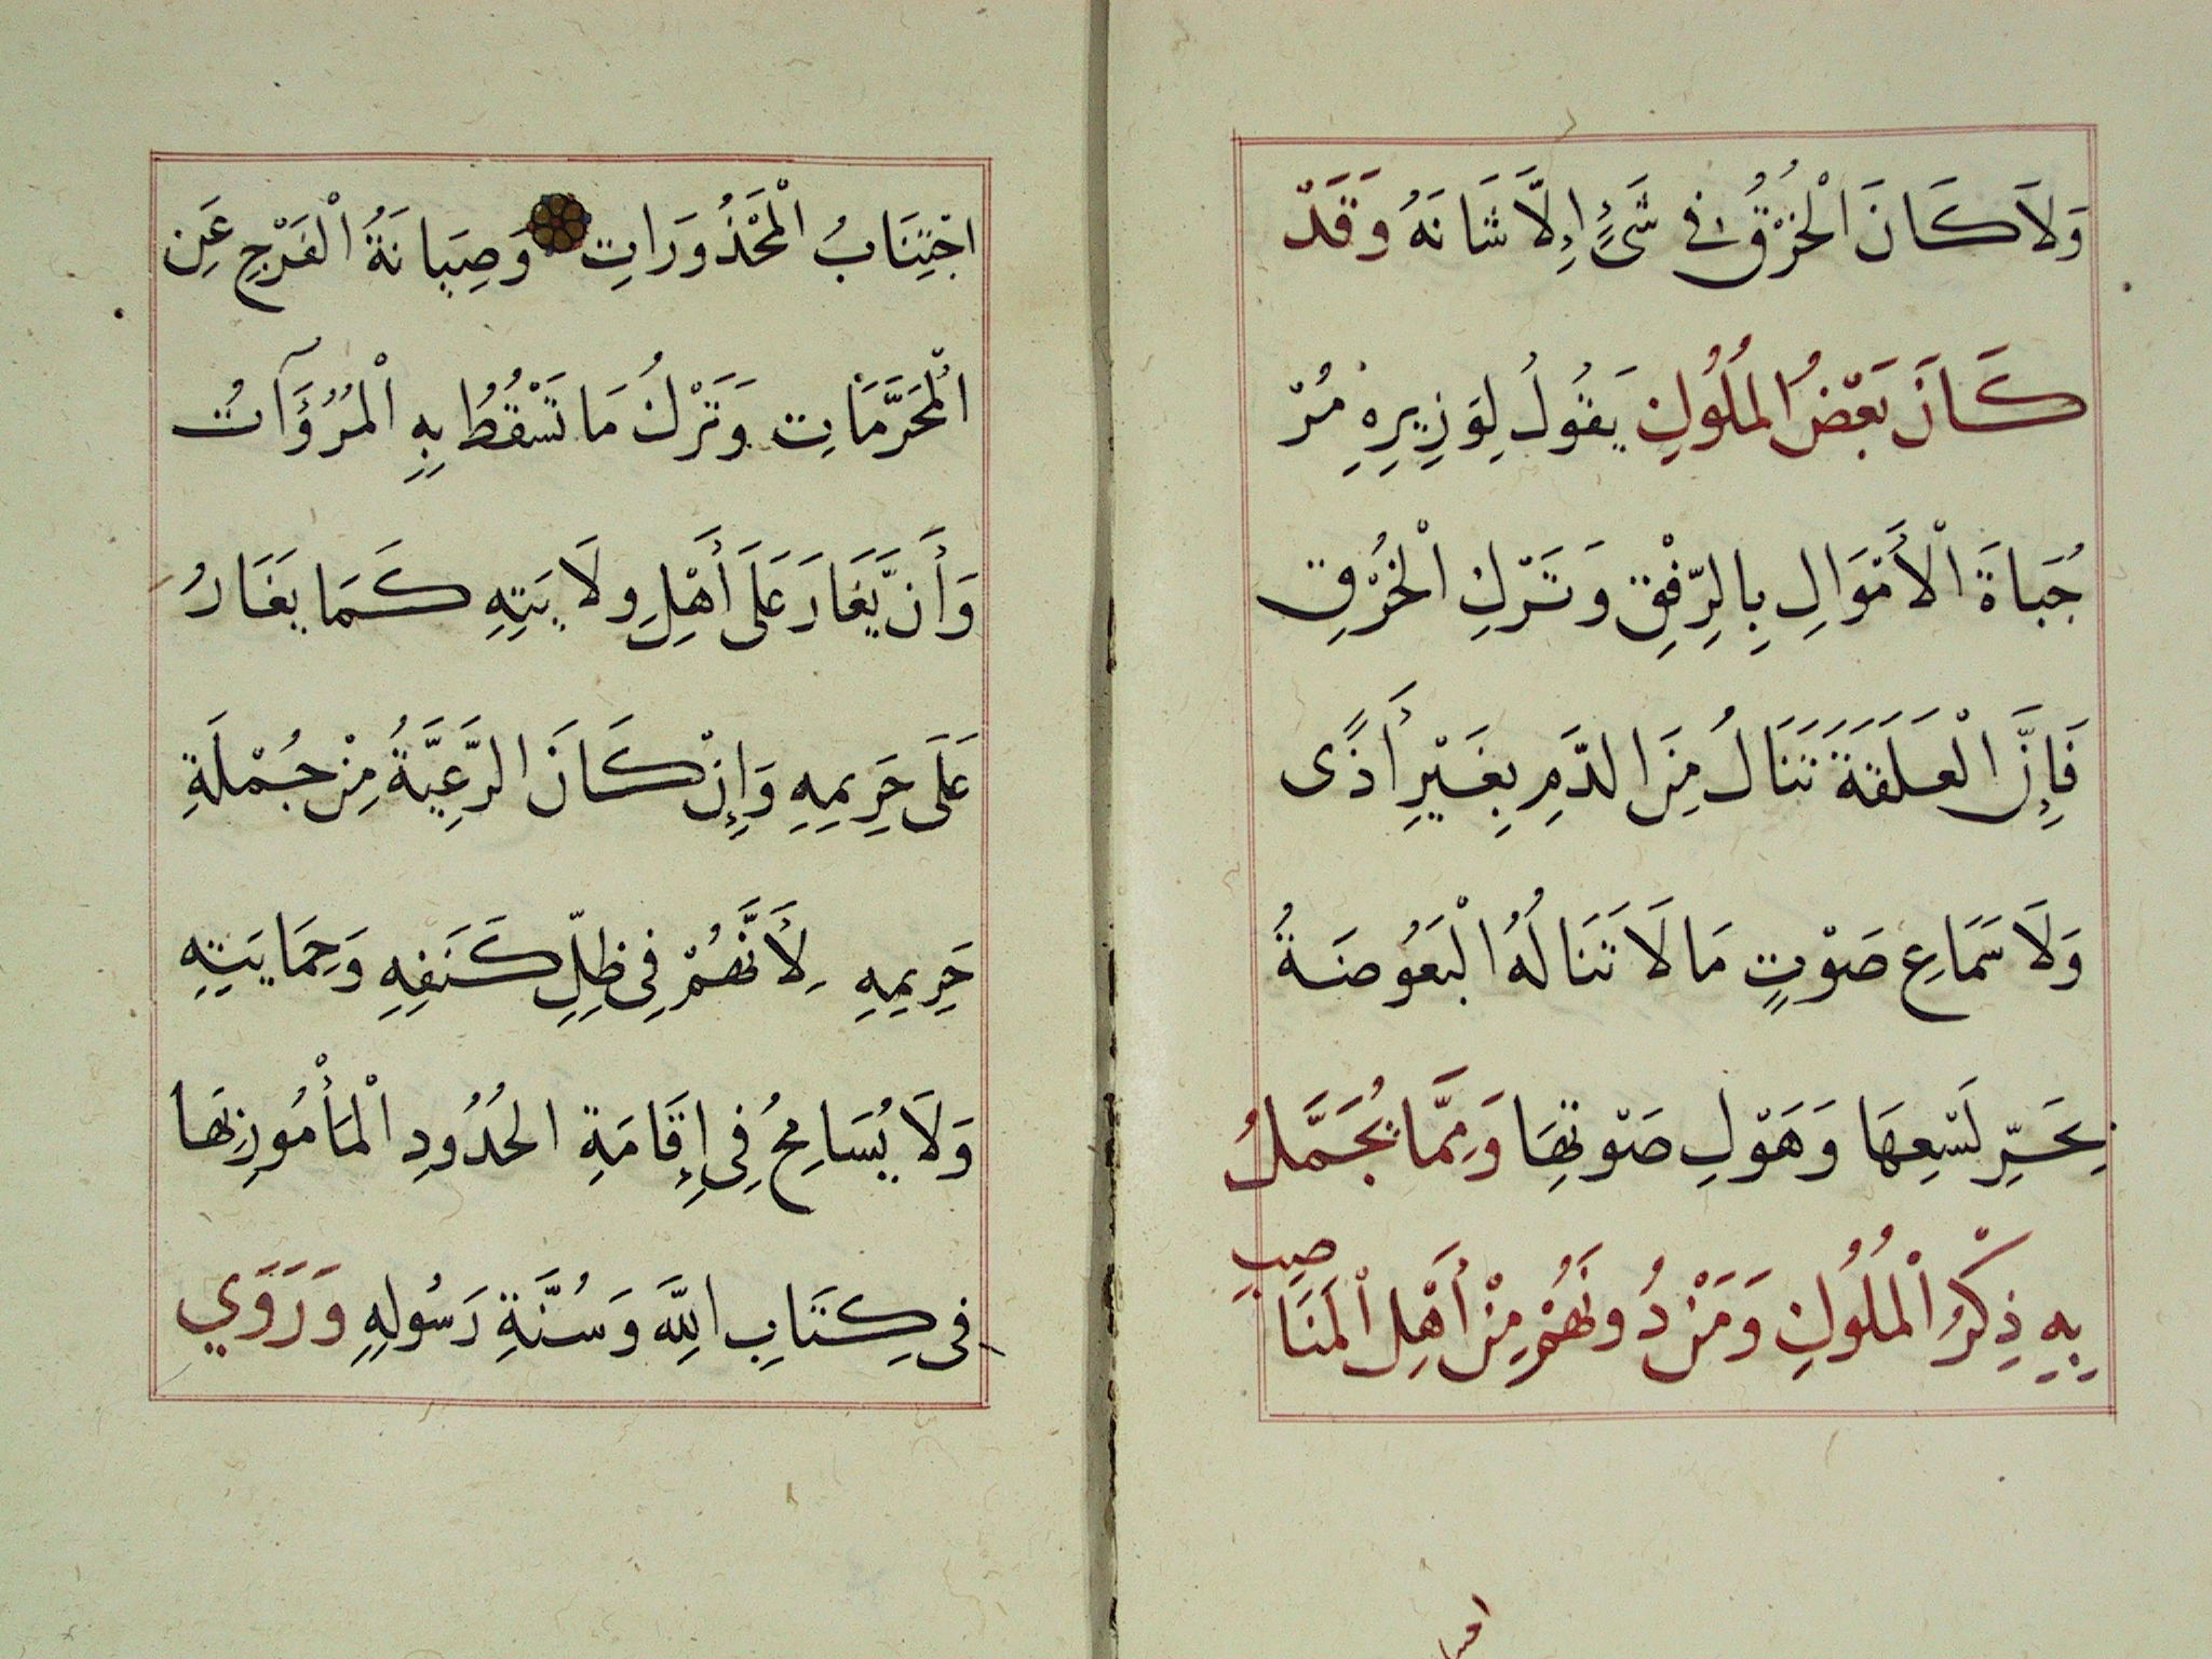 وَلَا كَانَ الْخُرْقُ فِي شَيْءٍ إِلَّا شَانَهُ وَقَدْ
كَانَ بَعْضُ الْمُلُوكِ يَقُولُ لِوَزِيرِهِ مُرْ
جُبَاةَ الْأَمْوَالِ بِالرِّفْقِ وَتَرْكِ الْخُرْقِ
فَإِنَّ الْعَلَقَةَ تَنَالُ مِنَ الدَّمِ بِغَيْرِ أَذًى
وَلَا سَمَاعِ صَوْتٍ مَا لَا تَنَالُهُ الْبَعُوضَةُ
بِحَرِّ لَسْعِهَا وَهَوْلِ صَوْتِهَا وَمِمَّا يُجَمَّلُ
بِهِ ذِكْرُ الْمُلُوكِ وَمَنْ دُونَهُمْ مِنْ أَهْلِ الْمَنَاصِبِ
اجْتِنَابُ الْمَحْذُورَاتِ وَصِيَانَةُ الْفَرْجِ عَنِ
الْمُحَرَّمَاتِ وَتَرْكُ مَا تَسْقُطُ بِهِ الْمُرُؤَآتُ
وَأَنْ يَّغَارَ عَلَى أَهْلِ وِلَايَتِهِ كَمَا يَغَارُ
عَلَى حَرِيمِهِ وَإِنْ كَانَ الرَّعِيَّةُ مِنْ جُمْلَةِ
حَرِيمِهِ لِأَنَّهُمْ فِي ظِلِّ كَنَفِهِ وَحِمَايَتِهِ
وَلَا يُسَامِحُ فِي إِقَامَةِ الحُدُودِ الْمَأْمُورِ بِهَا
فِي كِتَابِ اللَّهِ وَسُنَّةِ رَسُولِهِ وَرَوَي